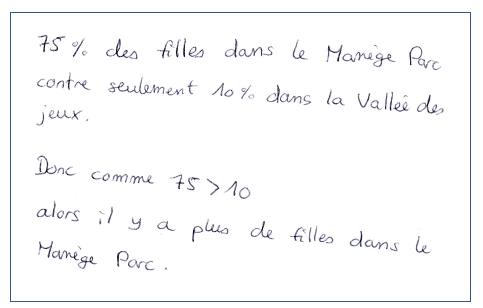 75 % des filles dans le Manège Parc
contre seulement 10 % dans la Vallée des
jeux.
Donc comme 75 > 10
alors il y a plus de filles dans le
Manège Parc.